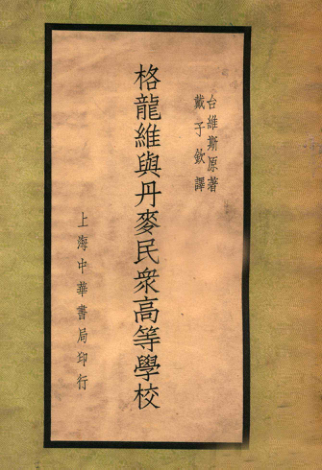 台維斯原著
戴子欽譯
格龍維與丹麥民衆高等學校
上海中華書局印行